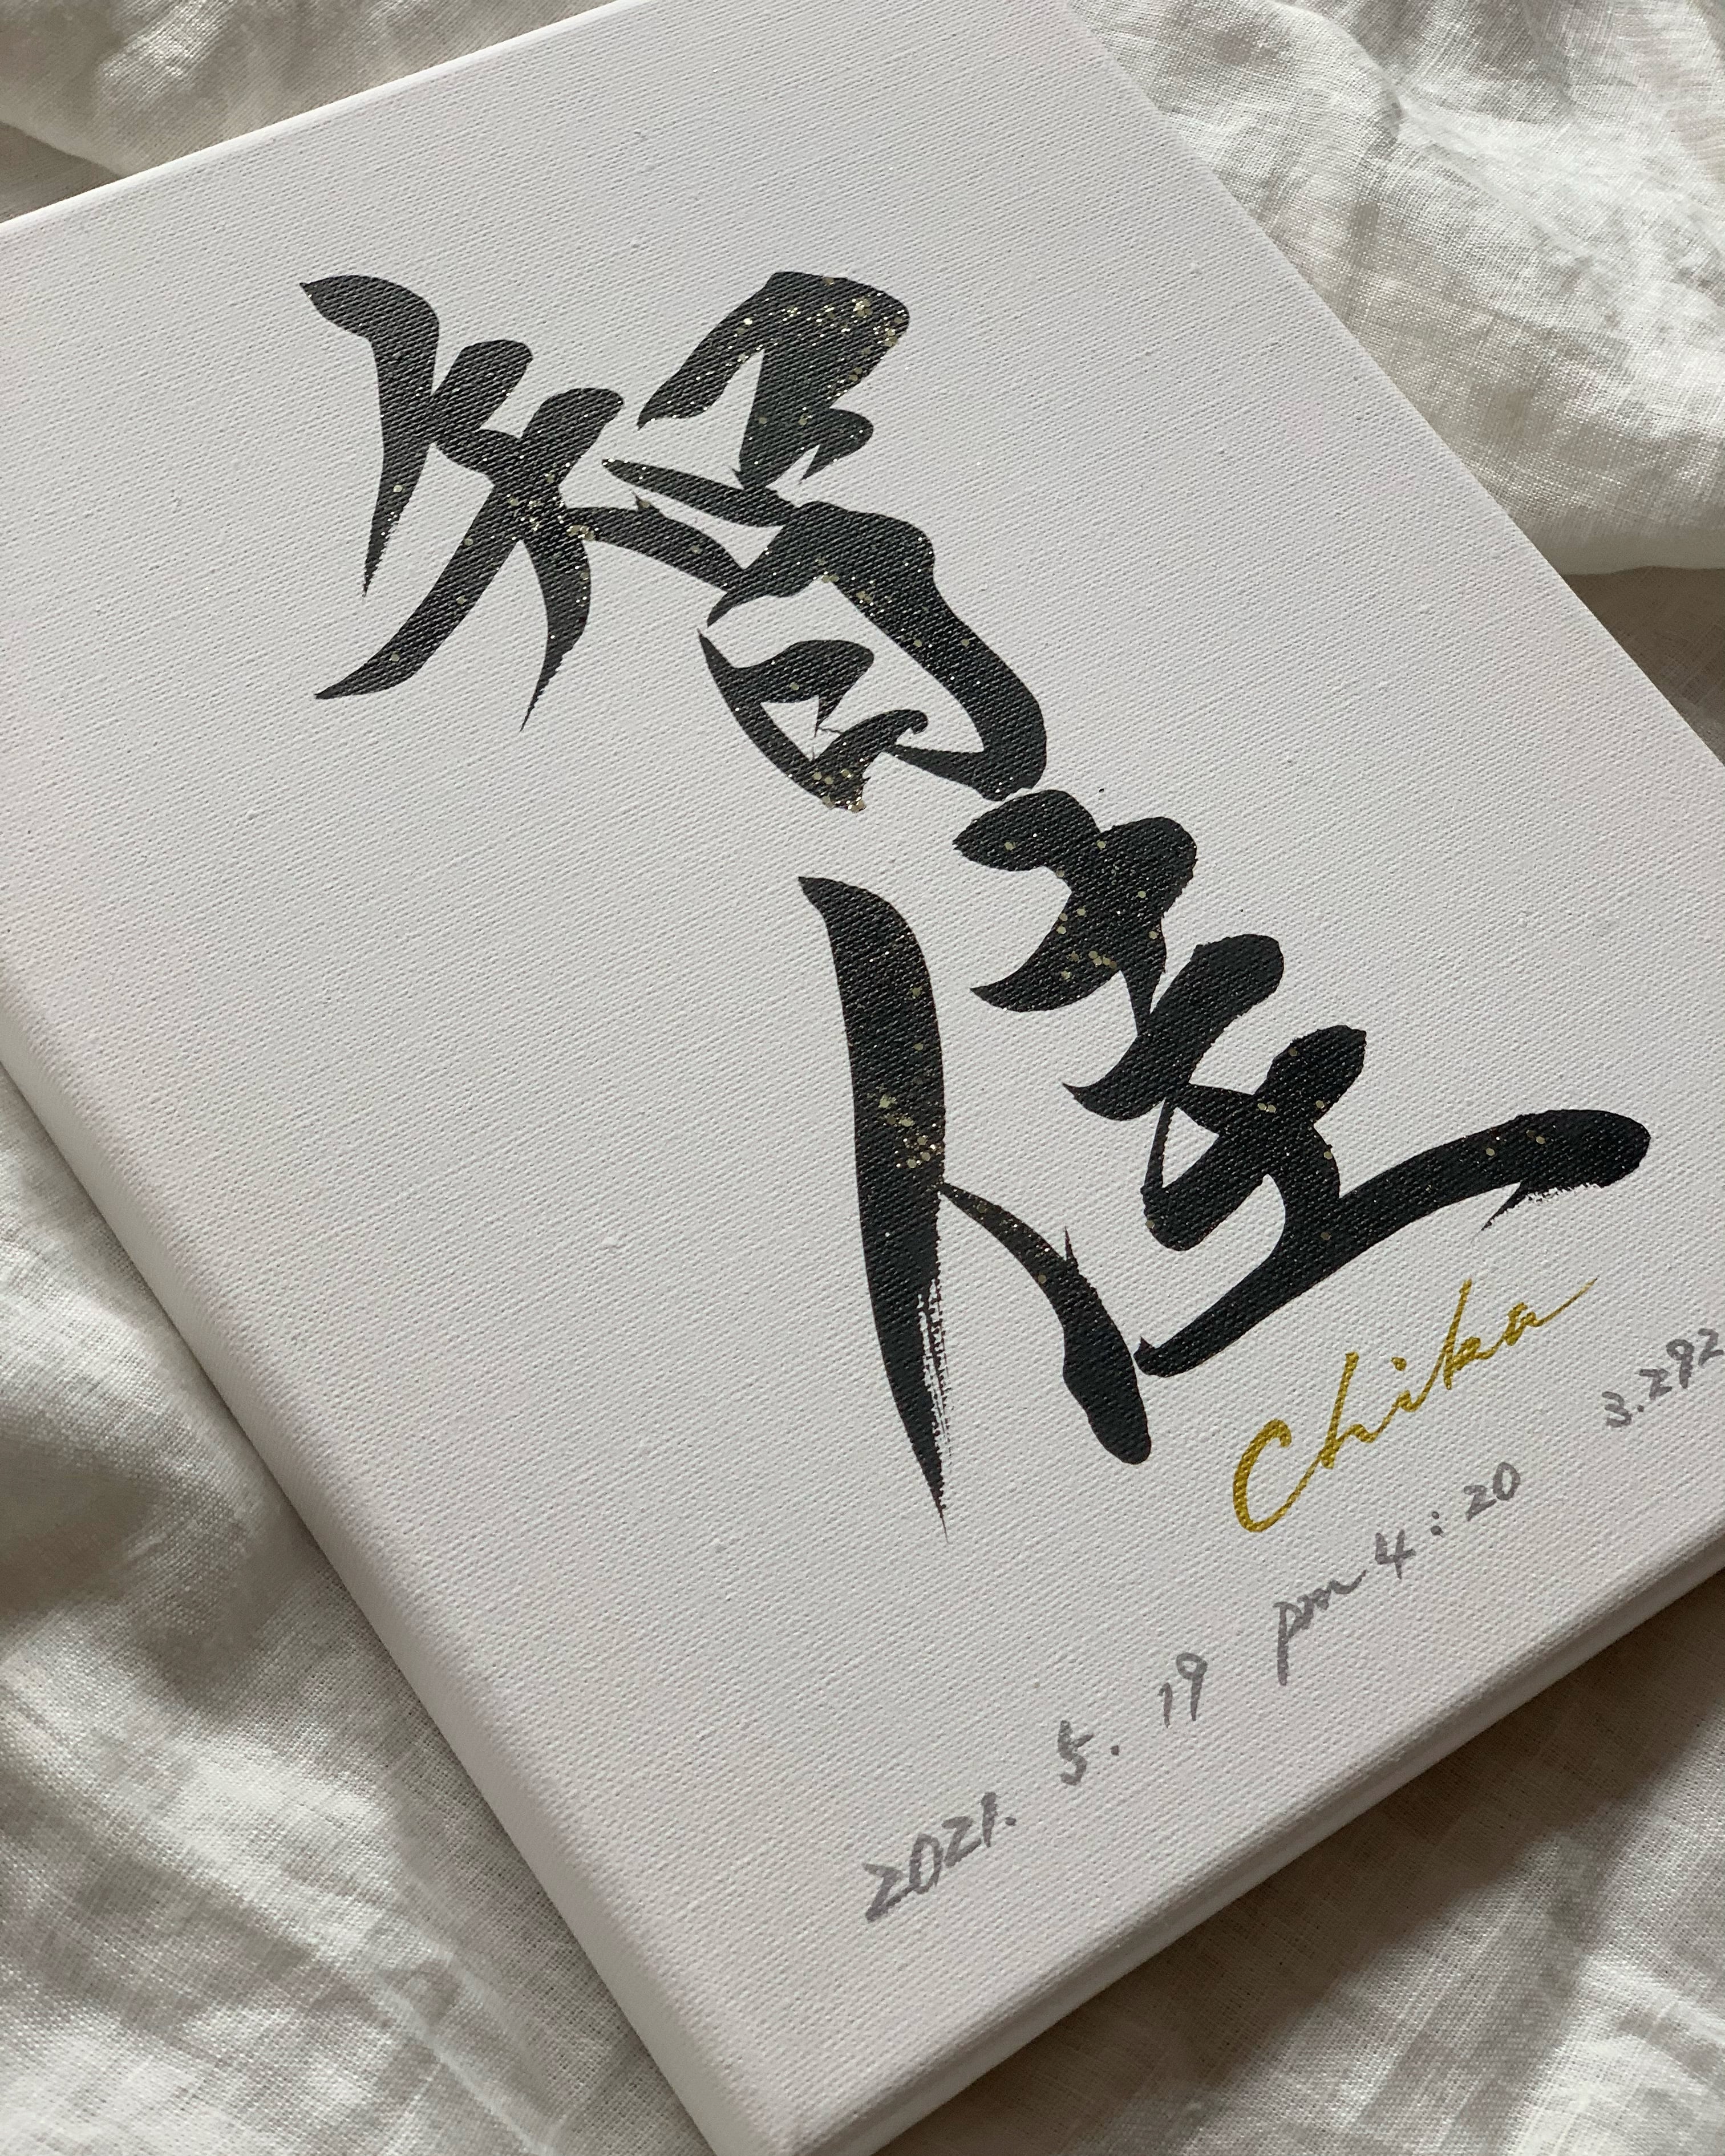 智佳
Chika
2021. 5. 19 pm 4:20 3.292